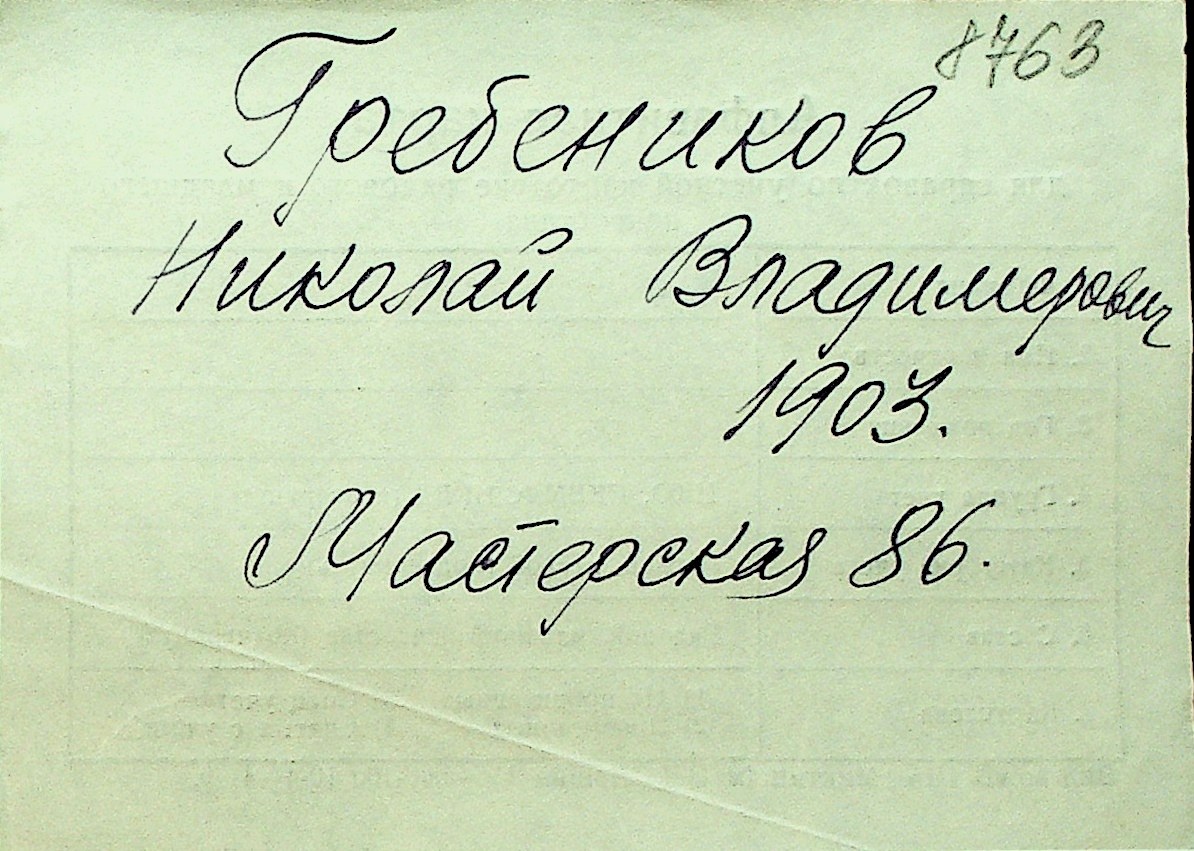 8763
Гребеников
Николай Владимерович
1903.
Мастерская 86.